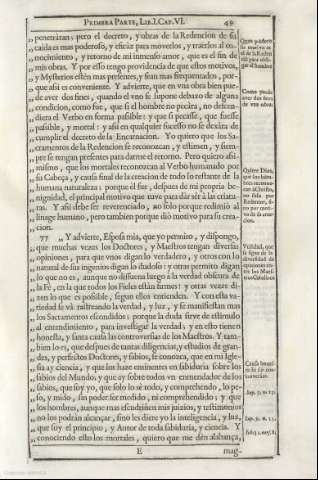 PRIMERA PARTE, LIB. I. CAP. VI. 49
penetrizan; pero el decreto, y obras de la Redencion de su
caida es mas poderoso, y eficaz para moverlos, y traerlos al co-
nocimiento, y retorno de mi inmenso amor, que es el fin de
mis obras. Y por esso tengo providencia de que estos motivos,
y Mysterios estèn mas presentes, y sean mas frequentados, por-
que assi es conveniente. Y advierte, que en vna obra bien pue-
de aver dos fines, quando el vno se supone debaxo de alguna
condicion, como fue, que si el hombre no pecàra, no descen-
diera el Verbo en forma passible: y que si pecasse, que fuesse
passible, y mortal: y assi en qualquier sucesso no se dexàra de
cumplir el decreto de la Encarnacion. Yo quiero que los Sa-
cramentos de la Redencion se reconozcan, y estimen, y siem-
pre se tengan presentes para darme el retorno. Pero quiero assi-
mismo, que los mortales reconozcan al Verbo humanado por
su Cabeça, y causa final de la creacion de todo lo restante de la
humana naturaleza: porque èl fue, despues de mi propria be-
nignidad, el principal motivo que tuve para dàr sèr à las criatu-
ras. Y assi debe ser reverenciado, no solo porque redimiò al
linage humano, pero tambien porque diò motivo para su crea-
cion.
77 Y advierte, Esposa mia, que yo permito, y dispongo,
que muchas vezes los Doctores, y Maestros tengan diversas
opiniones, para que vnos digan lo verdadero, y otros con lo
natural de sus ingenios digan lo dudoso: y otras permito digan
lo que no es, aunque no dissuena luego à la verdad obscura de
la Fè, en la que todos los Fieles estàn firmes: y otras vezes di-
zen lo que es possible, segun ellos entienden. Y con esta va-
riedad se và rastreando la verdad, y luz, y se manifiestan mas
los Sacramentos escondidos: porque la duda sirve de estimulo
al entendimiento, para investigar la verdad; y en esto tienen
honesta, y santa causa las controversias de los Maestros. Y tam-
bien lo es, que despues de tantas diligencias, y estudios de gran-
des, y perfectos Doctores, y sabios, se conozca, que en mi Igle-
sia ay ciencia, y que los haze eminentes en sabiduria sobre los
sabios del Mundo; y que ay sobre todos vn enmendador de los
sabios, que soy yo, que solo lo sè todo, y comprehendo, lo pe-
so, y mido, sin poder ser medido, ni comprehendido; y que
los hombres, aunque mas escudriñen mis juizios, y testimonios
no los podràn alcançar, sino les diere yo la inteligencia, y luz,
que soy el principio, y Autor de toda sabiduria, y ciencia. Y
conociendo esto los mortales, quiero que me dèn alabança,
E
mag-
Sap. 7. n. 15.